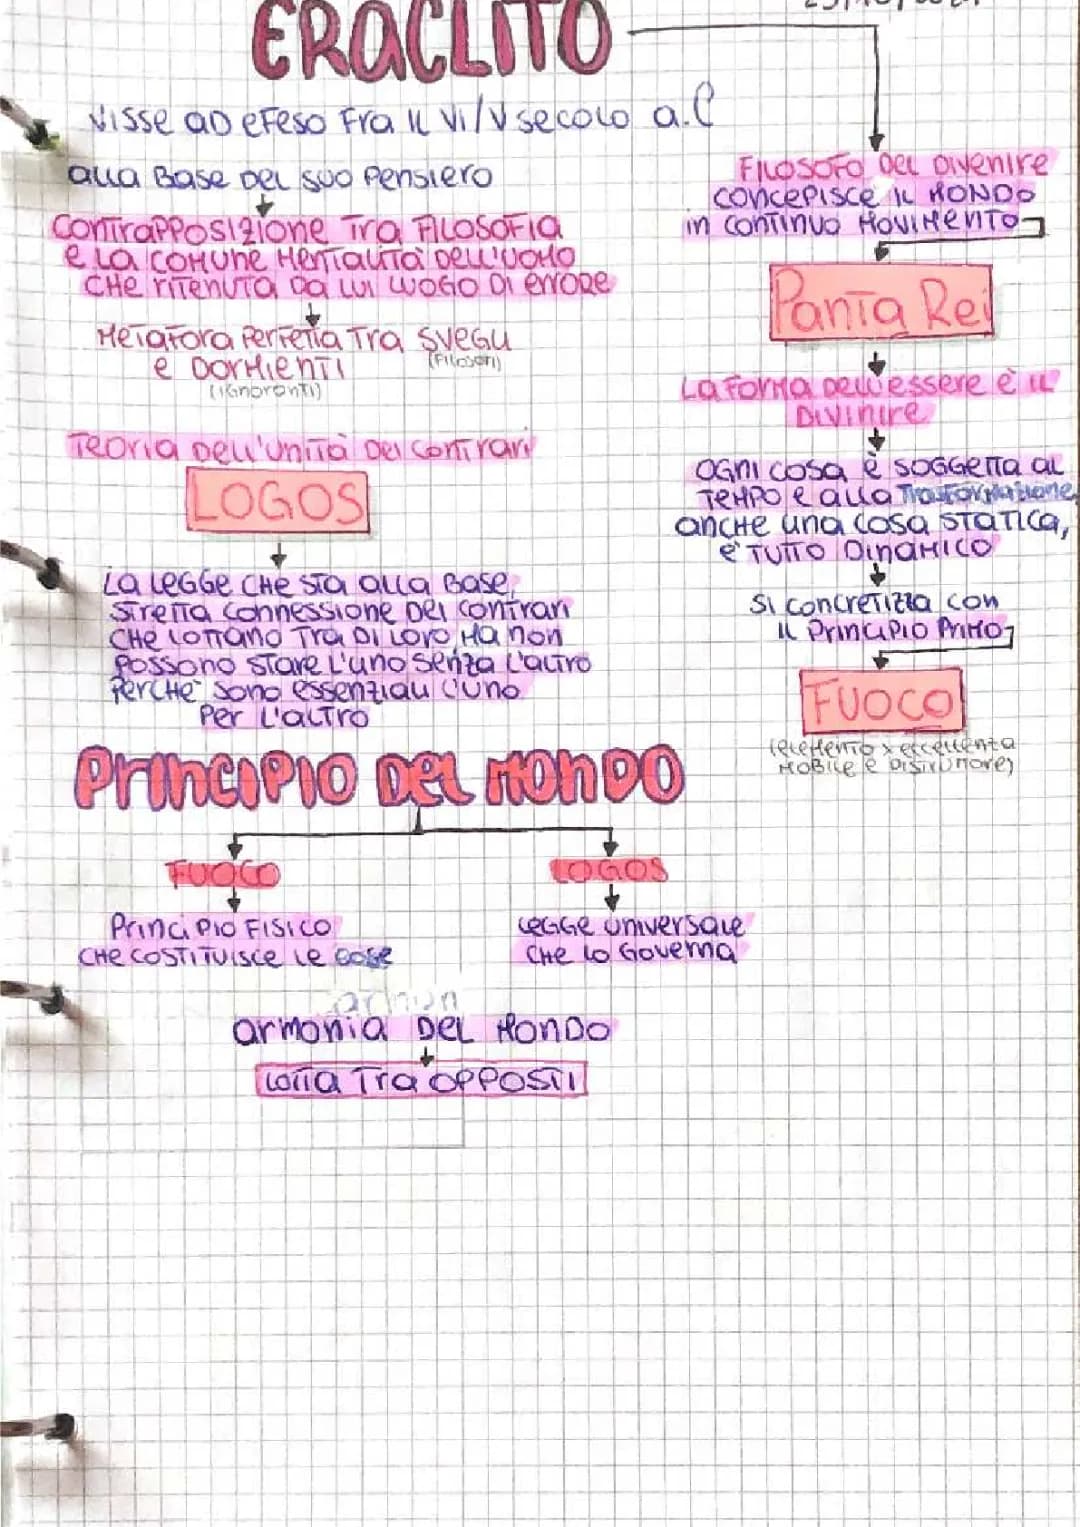 ERACLITO
Visse ad Efeso fra il VI/V secolo a.C
alla base del suo pensiero
Contrapposizione tra filosofia
e la comune mentalità dell'uomo
che ritenuta da lui luogo di errore
Metafora perfetta tra svegli
(filosofi)
e dormienti
(ignoranti)
Teoria dell'unità dei contrari
LOGOS
La legge che sta alla base,
stretta connessione dei contrari
che lottano tra di loro ma non
possono stare l'uno senza l'altro
perché sono essenziali l'uno
per l'altro
Filosofo del divenire
concepisce il mondo
in continuo movimento
Panta Rei
La forma dell'essere è il
divinire
ogni cosa è soggetta al
tempo e alla trasformazione,
anche una cosa statica,
è tutto dinamico
si concretizza con
il principio primo
FUOCO
(elemento x eccellenza
mobile e distruttore)
Principio del mondo
FUOCO
LOGOS
Principio fisico
che costituisce le cose
legge universale
che lo governa
armon
armonia del mondo
lotta tra opposti